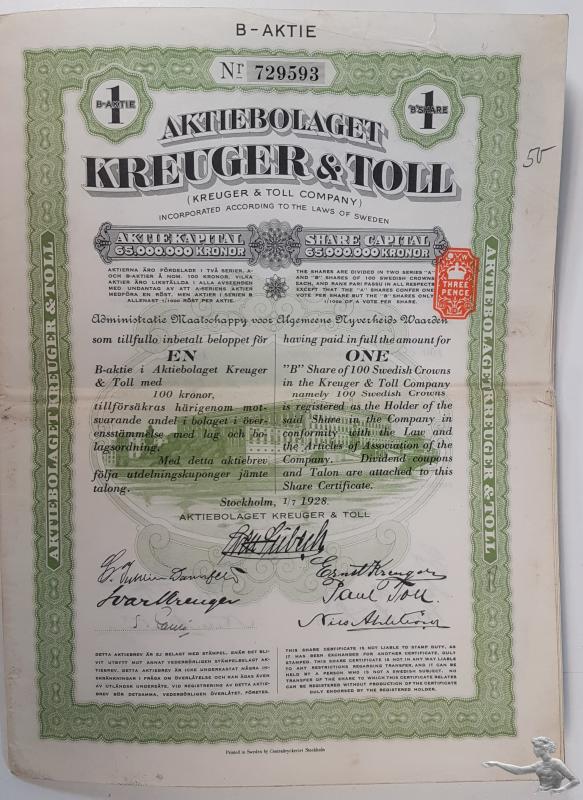 B-AKTIE
Nr 729593
1
B-AKTIE
1
"B" SHARE
AKTIEBOLAGET
KREUGER & TOLL
(KREUGER & TOLL COMPANY)
INCORPORATED ACCORDING TO THE LAWS OF SWEDEN
50
AKTIE KAPITAL
65.000.000 KRONOR
SHARE CAPITAL
65.000.000 KRONOR
AKTIERNA ÄRO FÖRDELADE I TVÅ SERIER, A-
OCH B-AKTIER Å NOM. 100 KRONOR, VILKA
AKTIER ÄRO LIKSTÄLLDA I ALLA AVSEENDEN
MED UNDANTAG AV ATT A-SERIENS AKTIER
MEDFÖRA EN RÖST, MEN AKTIER I SERIEN B
ALLENAST 1/1000 RÖST PER AKTIE.
THE SHARES ARE DIVIDED IN TWO SERIES "A"
AND "B" SHARES OF 100 SWEDISH CROWNS
EACH, AND RANK PARI PASSU IN ALL RESPECTS
EXCEPT THAT THE "A" SHARES CONFER ONE
VOTE PER SHARE BUT THE "B" SHARES ONLY
1/1000 OF A VOTE PER SHARE.
THREE
PENCE
Administratie Maatschappy voor Algemeene Nyverheids Waarden
som tillfullo inbetalt beloppet för
EN
B-aktie i Aktiebolaget Kreuger
& Toll med
100 kronor,
tillförsäkras härigenom mot-
svarande andel i bolaget i över-
ensstämmelse med lag och bo-
lagsordning.
Med detta aktiebrev
följa utdelningskuponger jämte
talong.
having paid in full the amount for
ONE
"B" Share of 100 Swedish Crowns
in the Kreuger & Toll Company
namely 100 Swedish Crowns
is registered as the Holder of the
said Share in the Company in
conformity with the Law and
the Articles of Association of the
Company. Dividend coupons
and Talon are attached to this
Share Certificate.
Stockholm, 1/7 1928.
AKTIEBOLAGET KREUGER & TOLL
Ernst Kreuger
Ivar Kreuger
Paul Toll
Nils Ahlström
DETTA AKTIEBREV ÄR EJ BELAGT MED STÄMPEL, ENÄR DET BLI-
VIT UTBYTT MOT ANNAT VEDERBÖRLIGEN STÄMPELBELAGT AK-
TIEBREV. DETTA AKTIEBREV ÄR ICKE UNDERKASTAT NÅGRA IN-
SKRÄNKNINGAR I FRÅGA OM ÖVERLÅTELSE OCH KAN ÄGAS ÄVEN
AV UTLÄNDSK UNDERSÅTE. VID REGISTRERING AV DETTA AKTIE-
BREV BÖR DETSAMMA, VEDERBÖRLIGEN ÖVERLÅTET, FÖRETES.
THIS SHARE CERTIFICATE IS NOT LIABLE TO STAMP DUTY, AS
IT HAS BEEN EXCHANGED FOR ANOTHER CERTIFICATE, DULY
STAMPED. THIS SHARE CERTIFICATE IS NOT IN ANY WAY LIABLE
TO ANY RESTRICTIONS REGARDING TRANSFER, AND IT CAN BE
HELD BY A PERSON WHO IS NOT A SWEDISH SUBJECT. NO
TRANSFER OF THE SHARE TO WHICH THIS CERTIFICATE RELATES
CAN BE REGISTERED WITHOUT PRODUCTION OF THE CERTIFICATE
DULY ENDORSED BY THE REGISTERED HOLDER.
AKTIEBOLAGET KREUGER & TOLL
AKTIEBOLAGET KREUGER & TOLL
Printed in Sweden by Centraltryckeriet Stockholm